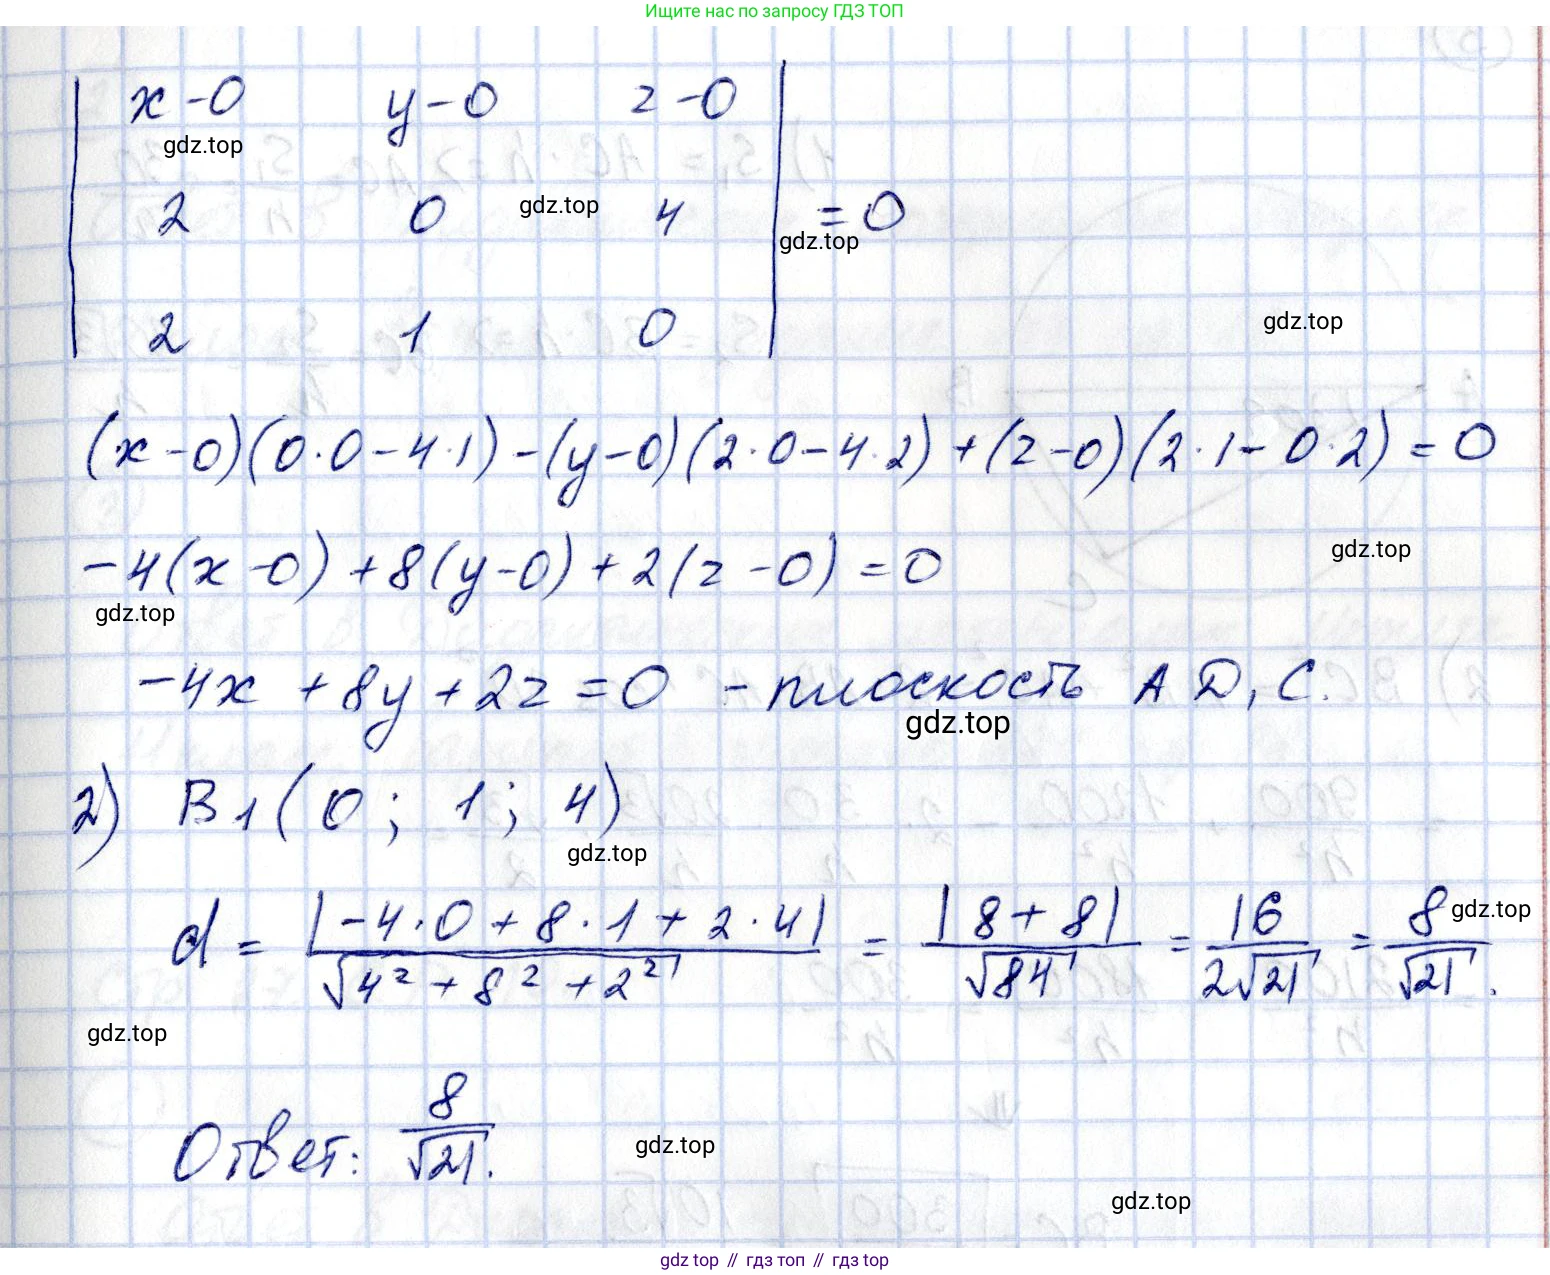 Ищите нас по запросу ГДЗ ТОП
x-0 y-0 z-0
gdz.top
2 0 gdz.top 4 = 0
gdz.top
gdz.top
2 1 0
(x-0)(0·0-4·1)-(y-0)(2·0-4·2)+(z-0)(2·1-0·2)=0
gdz.top
-4(x-0)+8(y-0)+2(z-0)=0
gdz.top
-4x+8y+2z=0 - плоскость AD1C.
gdz.top
2) B1(0; 1; 4)
gdz.top
d = |-4·0+8·1+2·4| / √4²+8²+2² = |8+8| / √84 = 16 / 2√21 = 8 / √21.
gdz.top
gdz.top
Ответ: 8 / √21.
gdz.top
gdz.top
gdz top // гдз топ // гдз top